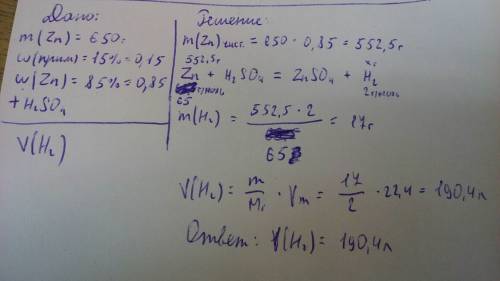 Дано:
m(Zn) = 650г
w(прим) = 15% = 0,15
w(Zn) = 85% = 0,85
+ H₂SO₄
V(H₂)
Решение:
m(Zn) чист. = 650 · 0,85 = 552,5г
552,5г xг
Zn + H₂SO₄ = ZnSO₄ + H₂
г/моль 2г/моль
65
m(H₂) = 552,5 · 2 / 65 = 17г
V(H₂) = m/Mr · Vm = 17/2 · 22,4 = 190,4л
Ответ: V(H₂) = 190,4л